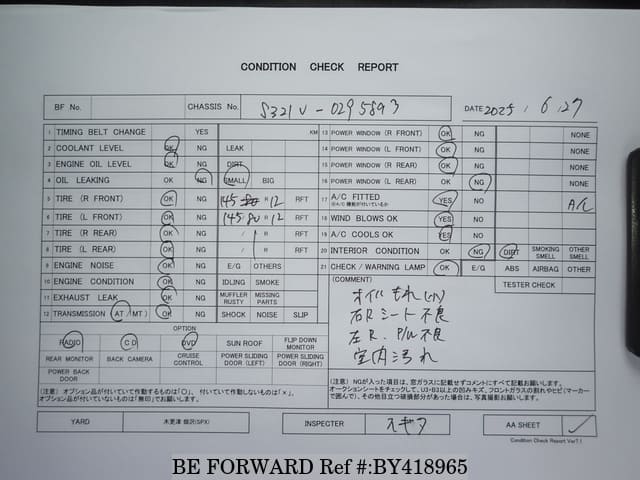 CONDITION CHECK REPORT
BF No. CHASSIS No. S321V-0295893 DATE 2025, 6, 27
1 TIMING BELT CHANGE YES KM
2 COOLANT LEVEL OK NG LEAK
3 ENGINE OIL LEVEL OK NG DIRT
4 OIL LEAKING OK NG SMALL BIG
5 TIRE (R FRONT) OK NG 145 80 R 12 RFT
6 TIRE (L FRONT) OK NG 145 80 R 12 RFT
7 TIRE (R REAR) OK NG / R RFT
8 TIRE (L REAR) OK NG / R RFT
9 ENGINE NOISE OK NG E/G OTHERS
10 ENGINE CONDITION OK NG IDLING SMOKE
11 EXHAUST LEAK OK NG MUFFLER RUSTY MISSING PARTS
12 TRANSMISSION (AT / MT) OK NG SHOCK NOISE SLIP
13 POWER WINDOW (R FRONT) OK NG NONE
14 POWER WINDOW (L FRONT) OK NG NONE
15 POWER WINDOW (R REAR) OK NG NONE
16 POWER WINDOW (L REAR) OK NG NONE
17 A/C FITTED YES NO A/C
※A/C 機能が付いているか
18 WIND BLOWS OK YES NO
19 A/C COOLS OK YES NO
20 INTERIOR CONDITION OK NG DIRT SMOKING SMELL OTHER SMELL
21 CHECK / WARNING LAMP OK E/G ABS AIRBAG OTHER
(COMMENT) TESTER CHECK
オイルもれ(小)
右Rシート不良
左R. P/W不良
室内汚れ
OPTION
RADIO CD DVD SUN ROOF FLIP DOWN MONITOR
REAR MONITOR BACK CAMERA CRUISE CONTROL POWER SLIDING DOOR (LEFT) POWER SLIDING DOOR (RIGHT)
POWER BACK DOOR
(注意) オプション品が付いていて作動するものは「○」、付いていて作動しないものは「×」、
オプション品が付いていないものは「無印」でお願いします。
(注意) NGが入った項目は、窓ガラスに記載せずコメントにすべて記載お願いします。
オークションシートをチェックして、U3・B3以上の凹みキズ、フロントガラスの割れやヒビ(マーカー
で囲んで)、その他目立つ破損部分があった場合は、写真撮影お願いします。
YARD 木更津 INSPECTER スギタ AA SHEET
Condition Check Report Ver7.1
BE FORWARD Ref #:BY418965